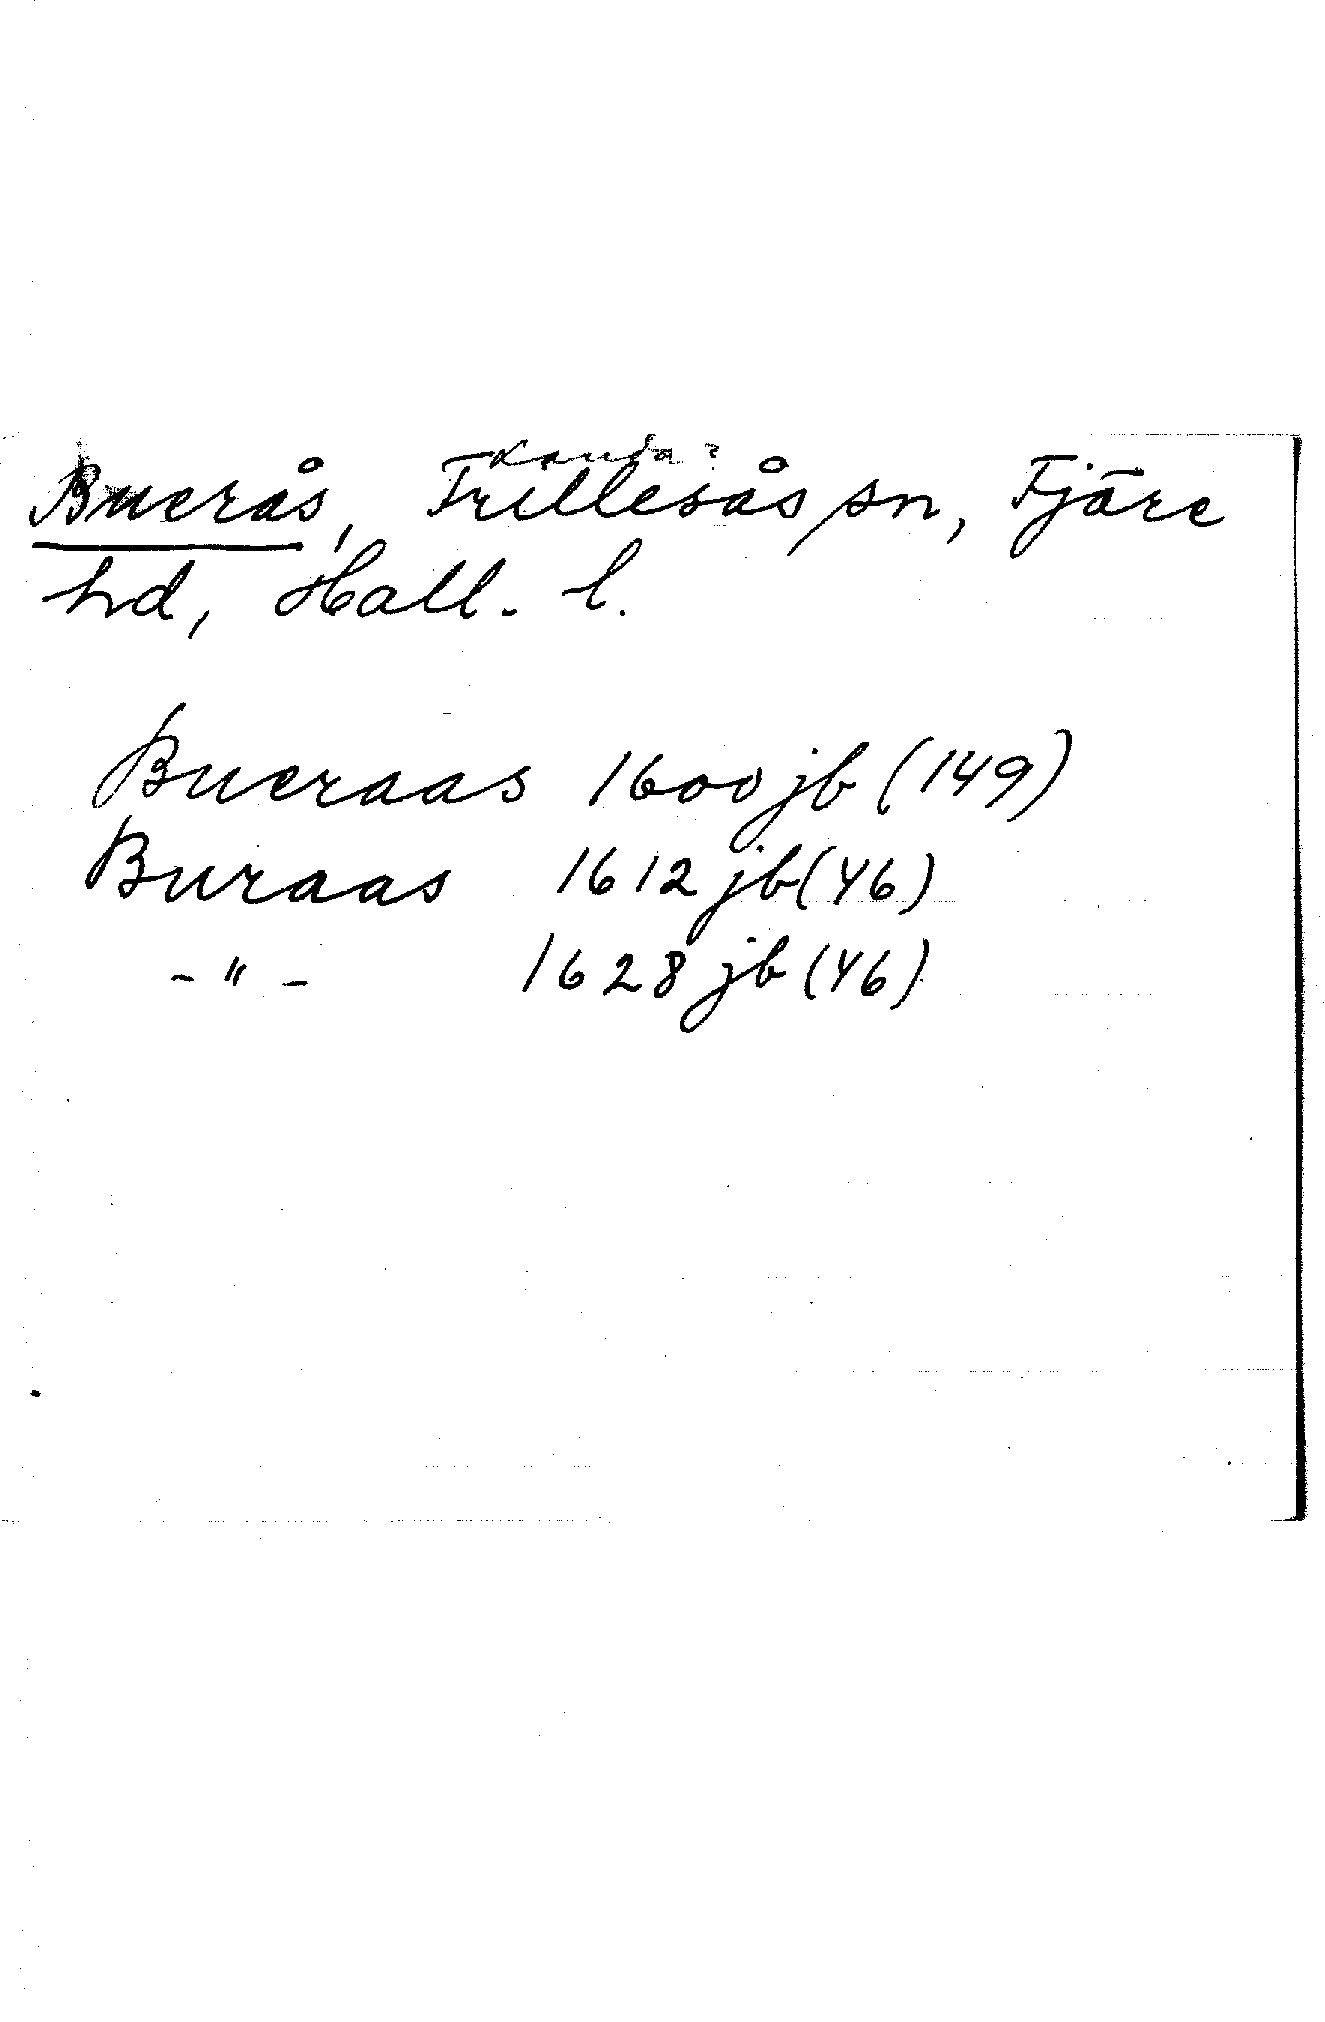 Buerås, Frillesås sn, Fjäre
hd, Hall. l.
Bueraas 1600 jb (149)
Buraas 1612 jb (46)
-"- 1628 jb (46)